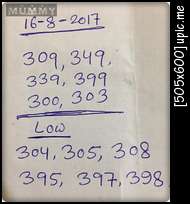 MUMMY
16-8-2017
309, 349,
339, 399
300, 303
LOW
304, 305, 308
395, 397, 398
[505x600] uplc.me